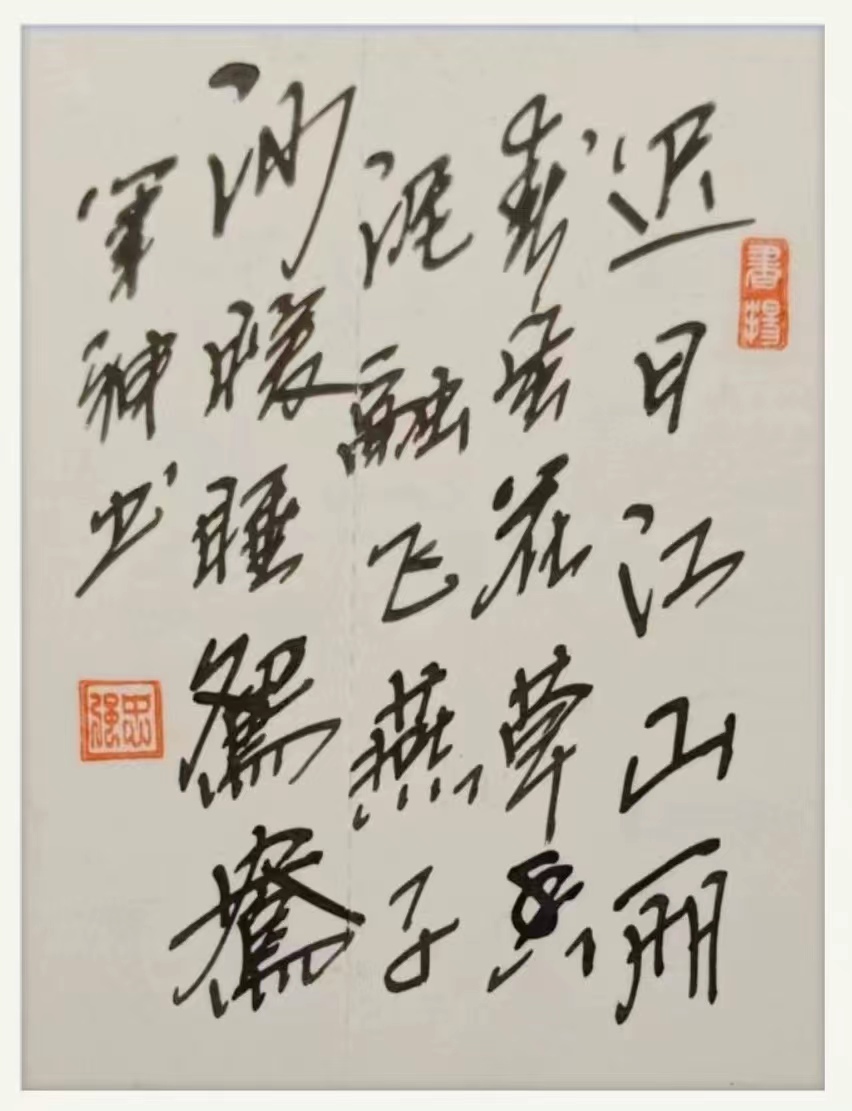 迟日江山丽
春风花草香
泥融飞燕子
沙暖睡鸳鸯
军神书
忠强